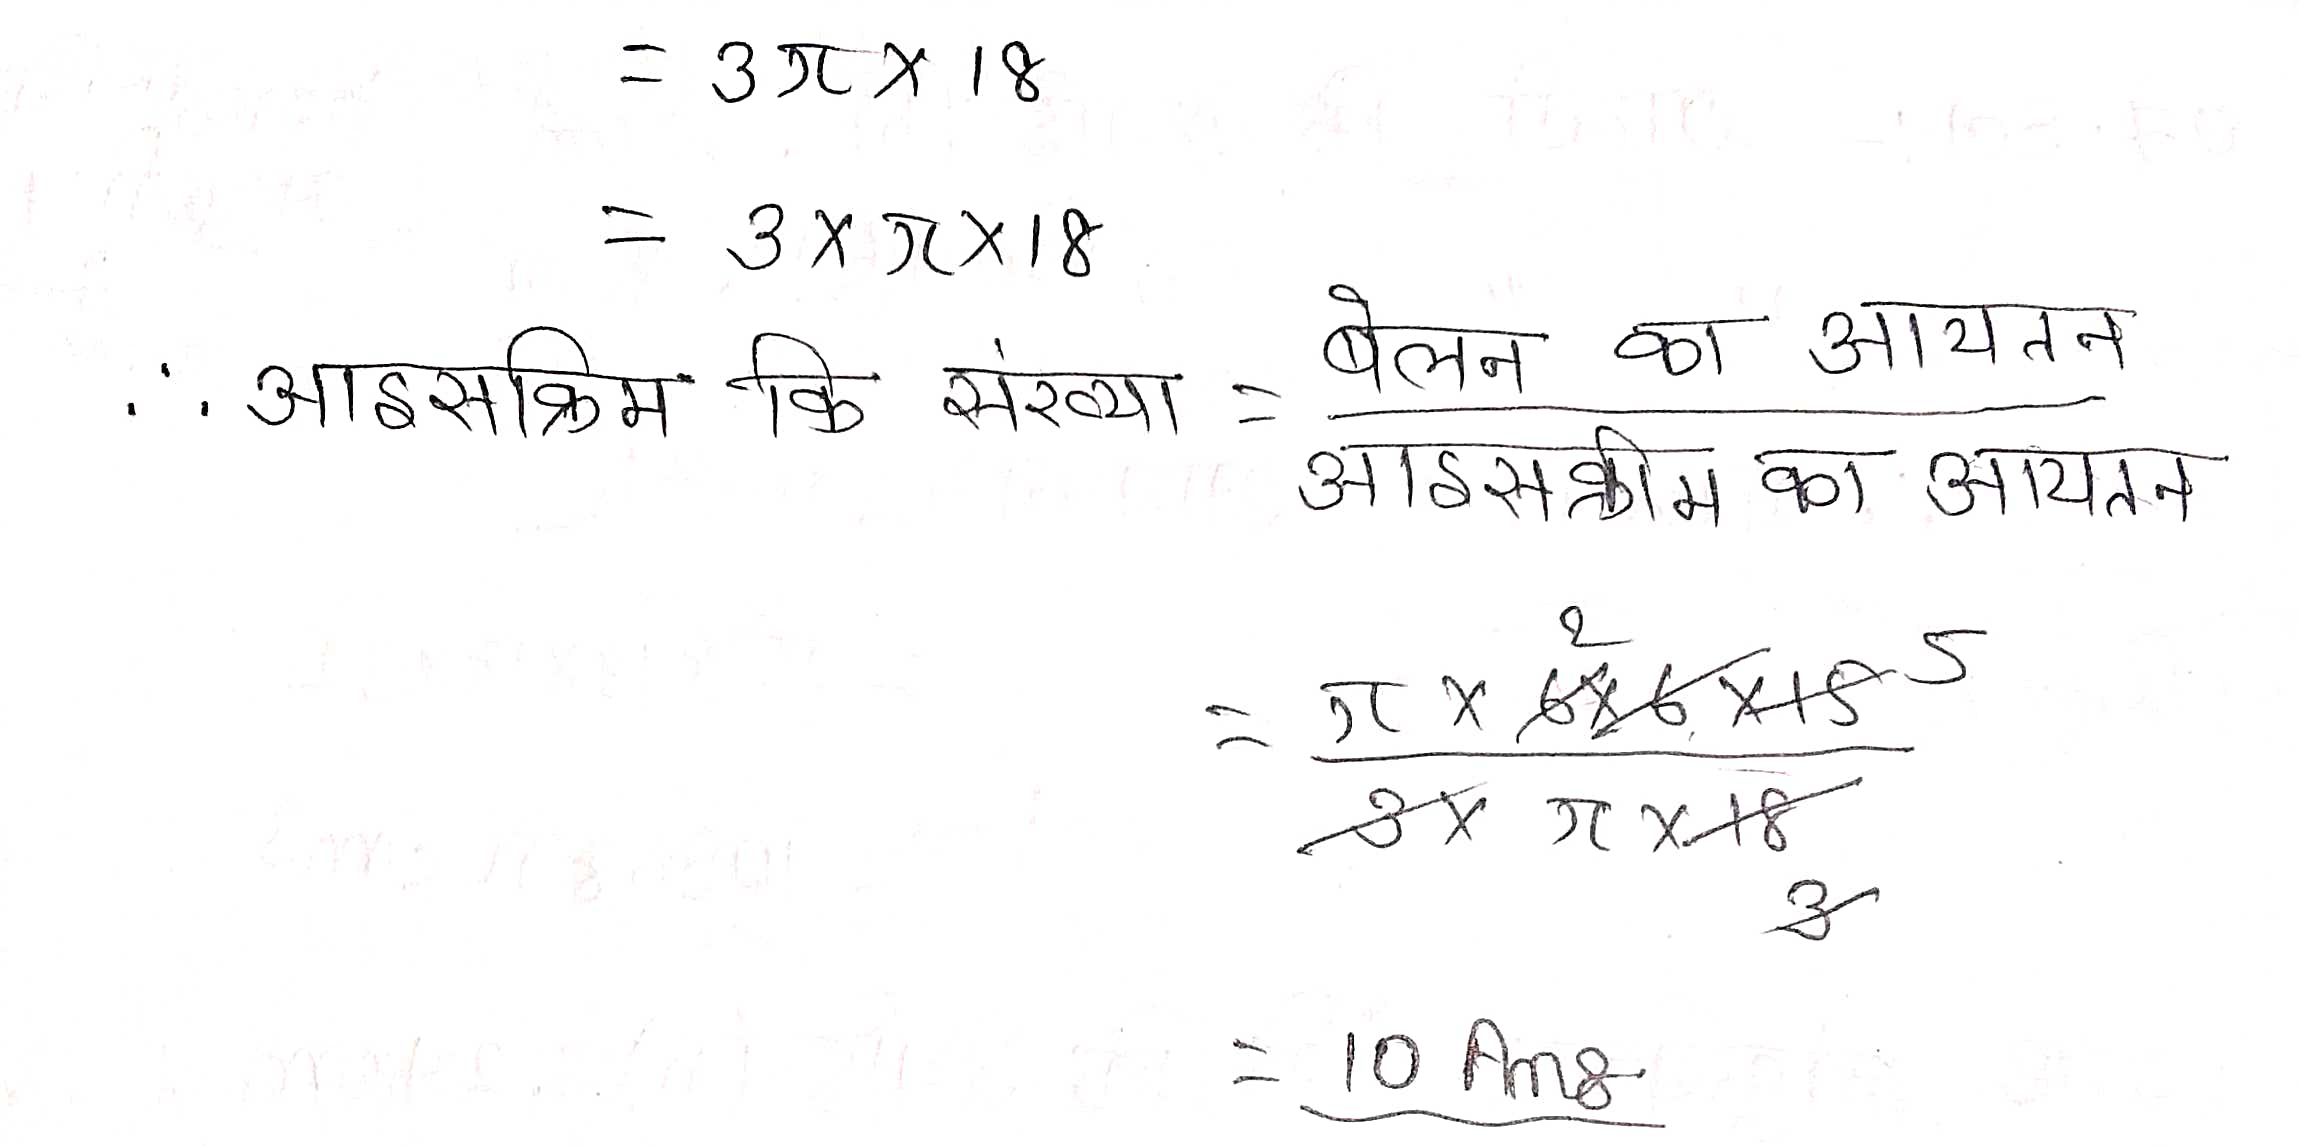 = 3π × 18
= 3 × π × 18
∴ आइसक्रिम कि संख्या = बेलन का आयतन
आइसक्रीम का आयतन
2
= π × 6 × 6 × 15 5
3 × π × 18
3
= 10 Ans